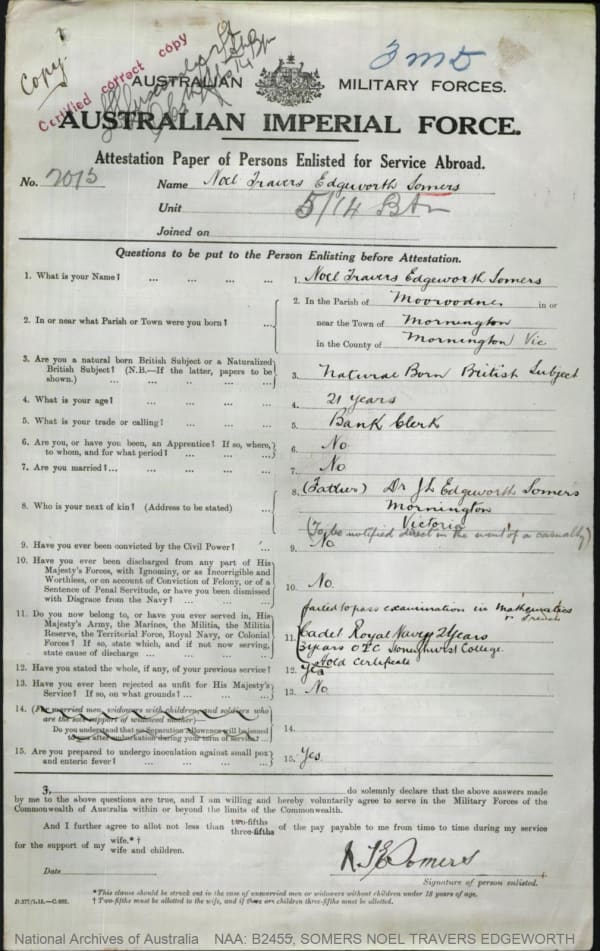 Copy.
Certified correct copy
3 MD
AUSTRALIAN MILITARY FORCES.
AUSTRALIAN IMPERIAL FORCE.
Attestation Paper of Persons Enlisted for Service Abroad.
No. 7015 Name Noel Travers Edgeworth Somers
Unit 5/14 Btn
Joined on
Questions to be put to the Person Enlisting before Attestation.
1. What is your Name? ... ... ... ... 1. Noel Travers Edgeworth Somers
2. In or near what Parish or Town were you born? ... 2. In the Parish of Mooroodue in or
near the Town of Mornington
in the County of Mornington Vic
3. Are you a natural born British Subject or a Naturalized
British Subject? (N.B.—If the latter, papers to be
shown.) ... ... ... ... ... 3. Natural Born British Subject
4. What is your age? ... ... ... ... 4. 21 years
5. What is your trade or calling? ... ... ... 5. Bank Clerk
6. Are you, or have you been, an Apprentice? If so, where,
to whom, and for what period? ... ... ... 6. No
7. Are you married?... ... ... ... ... 7. No
8. Who is your next of kin? (Address to be stated) ... 8. (Father) Dr J L Edgeworth Somers
Mornington
Victoria
(To be notified direct in the event of a casualty)
9. Have you ever been convicted by the Civil Power? ... 9. No.
10. Have you ever been discharged from any part of His
Majesty's Forces, with Ignominy, or as Incorrigible and
Worthless, or on account of Conviction of Felony, or of a
Sentence of Penal Servitude, or have you been dismissed
with Disgrace from the Navy? ... ... ... 10. No.
11. Do you now belong to, or have you ever served in, His
Majesty's Army, the Marines, the Militia, the Militia
Reserve, the Territorial Force, Royal Navy, or Colonial
Forces? If so, state which, and if not now serving,
state cause of discharge ... ... ... ...
failed to pass examination in Mathematics
& French
11. Cadet Royal Navy 2 Years
3 years OTC Stoneyhurst College.
Hold Certificate
12. Have you stated the whole, if any, of your previous service? 12. Yes
13. Have you ever been rejected as unfit for His Majesty's
Service? If so, on what grounds? ... ... ... 13. No
14. (For married men, widowers with children, and soldiers who
are the sole support of widowed mother)—
Do you understand that no Separation Allowance will be issued
to you after embarkation during your term of service? ... 14.
15. Are you prepared to undergo inoculation against small pox
and enteric fever? ... ... ... ... 15. Yes.
I, do solemnly declare that the above answers made
by me to the above questions are true, and I am willing and hereby voluntarily agree to serve in the Military Forces of the
Commonwealth of Australia within or beyond the limits of the Commonwealth.
And I further agree to allot not less than two-fifths three-fifths of the pay payable to me from time to time during my service
for the support of my wife.*† wife and children.
Date
N T E Somers
Signature of person enlisted.
*This clause should be struck out in the case of unmarried men or widowers without children under 18 years of age.
† Two-fifths must be allotted to the wife, and if there are children three-fifths must be allotted.
National Archives of Australia NAA: B2455, SOMERS NOEL TRAVERS EDGEWORTH